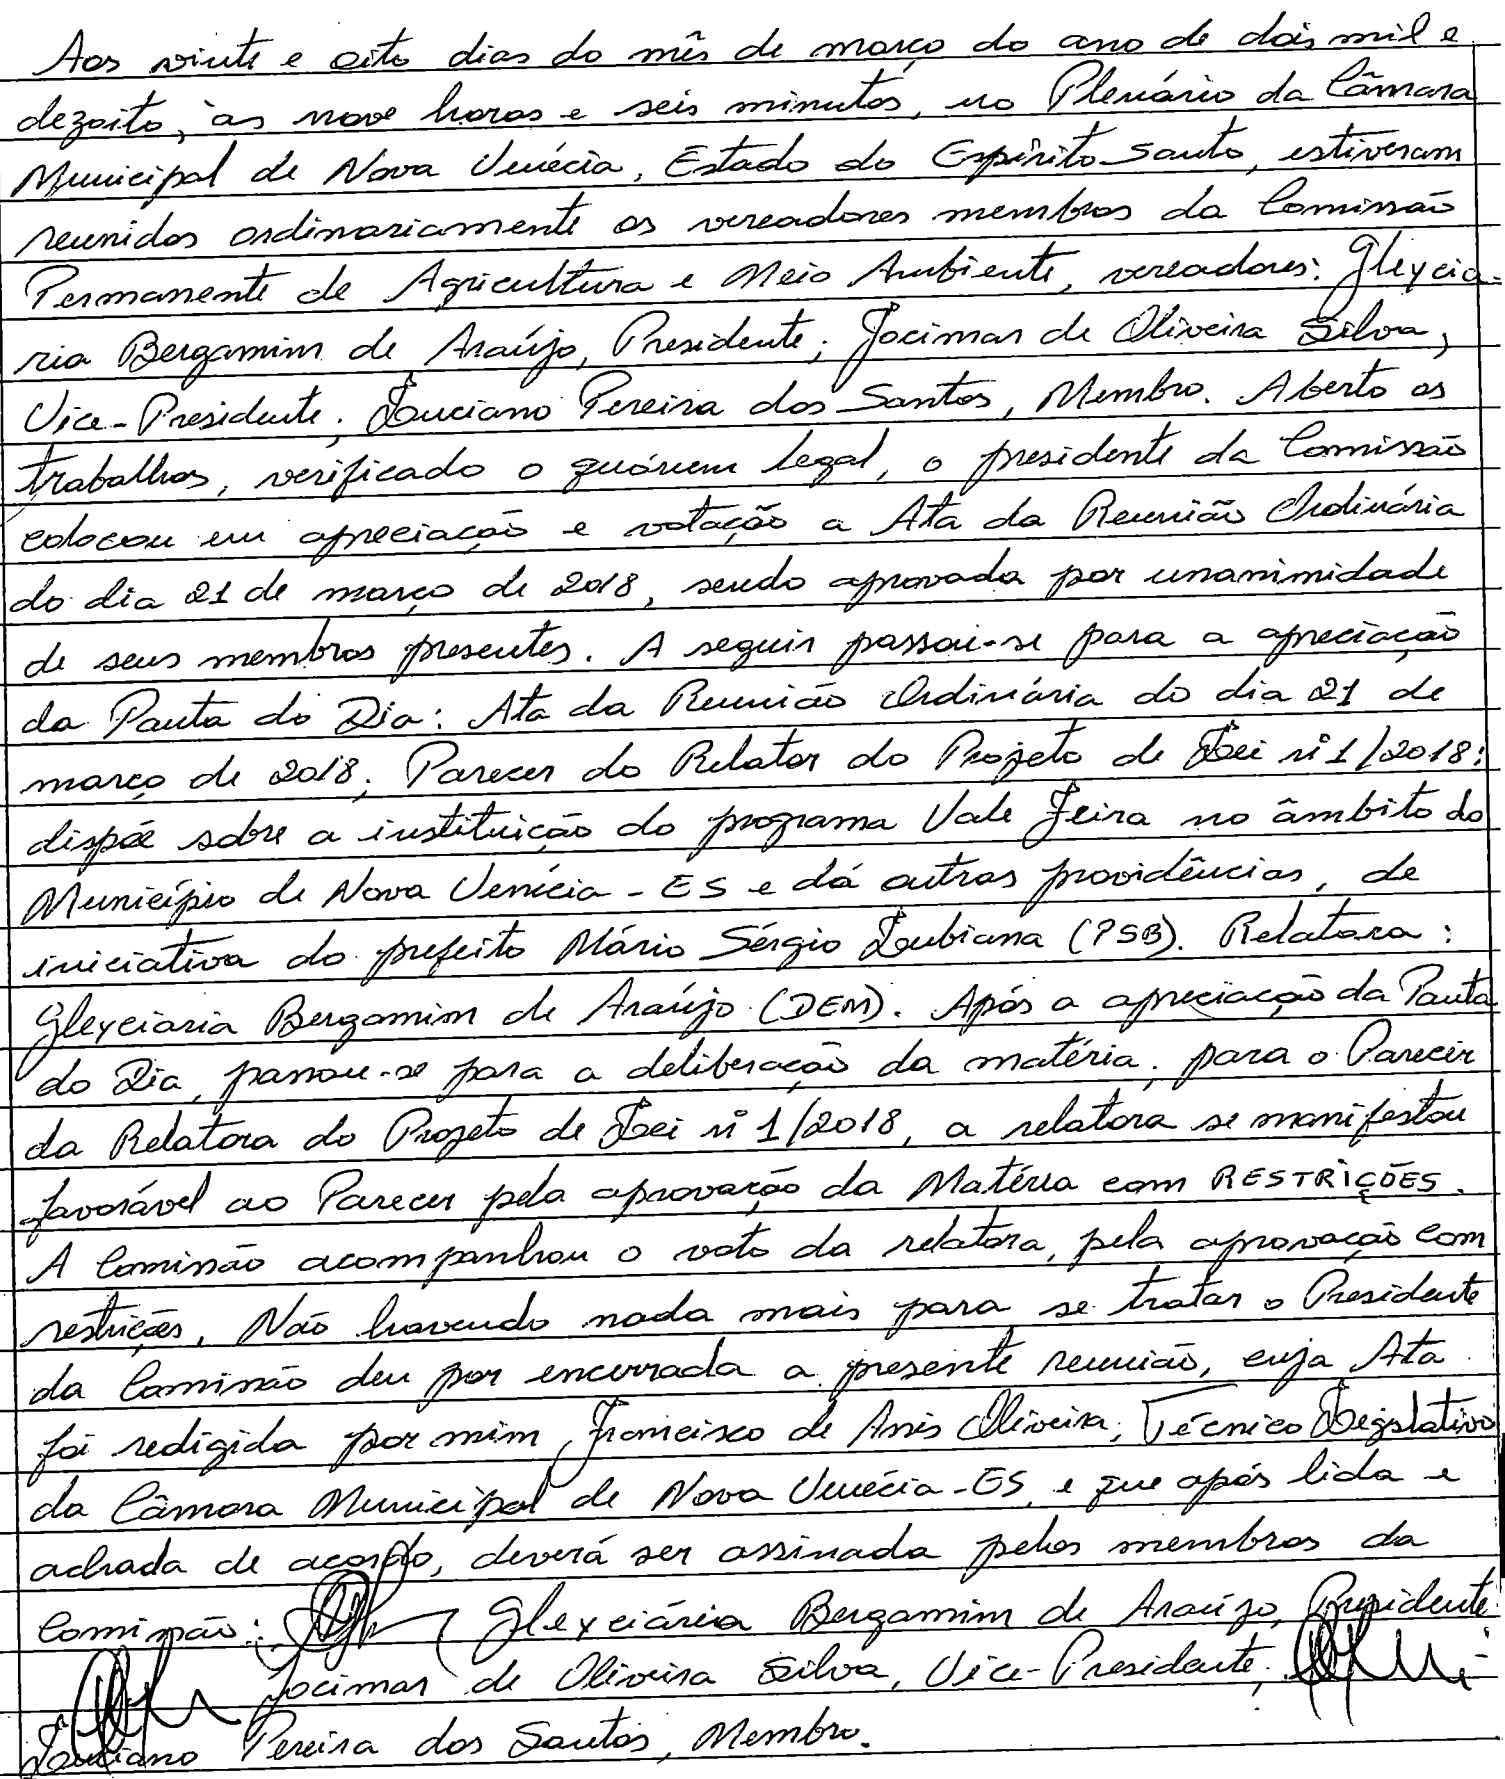 Aos vinte e oito dias do mês de março do ano de dois mil e
dezoito, às nove horas e seis minutos, no Plenário da Câmara
Municipal de Nova Venécia, Estado do Espírito Santo, estiveram
reunidos ordinariamente os vereadores membros da Comissão
Permanente de Agricultura e Meio Ambiente, vereadores: Gleycia-
ria Bergamim de Araújo, Presidente; Jocimar de Oliveira Silva,
Vice-Presidente; Luciano Pereira dos Santos, Membro. Aberto os
trabalhos, verificado o quórum legal, o presidente da Comissão
colocou em apreciação e votação a Ata da Reunião Ordinária
do dia 21 de março de 2018, sendo aprovada por unanimidade
de seus membros presentes. A seguir passou-se para a apreciação
da Pauta do Dia: Ata da Reunião Ordinária do dia 21 de
março de 2018; Parecer do Relator do Projeto de Lei nº 1/2018:
dispõe sobre a instituição do programa Vale Feira no âmbito do
Município de Nova Venécia - ES e dá outras providências, de
iniciativa do prefeito Mário Sérgio Lubiana (PSB). Relatora:
Gleyciaria Bergamim de Araújo (DEM). Após a apreciação da Pauta
do Dia, passou-se para a deliberação da matéria: para o Parecer
da Relatora do Projeto de Lei nº 1/2018, a relatora se manifestou
favorável ao Parecer pela aprovação da Matéria com RESTRIÇÕES.
A Comissão acompanhou o voto da relatora, pela aprovação com
restrições. Não havendo nada mais para se tratar o Presidente
da Comissão deu por encerrada a presente reunião, cuja Ata
foi redigida por mim, Francisco de Assis Oliveira, Técnico Legislativo
da Câmara Municipal de Nova Venécia-ES, e que após lida e
achada de acordo, deverá ser assinada pelos membros da
Comissão: Glexciária Bergamim de Araújo, Presidente;
Jocimar de Oliveira Silva, Vice-Presidente;
Luciano Pereira dos Santos, Membro.